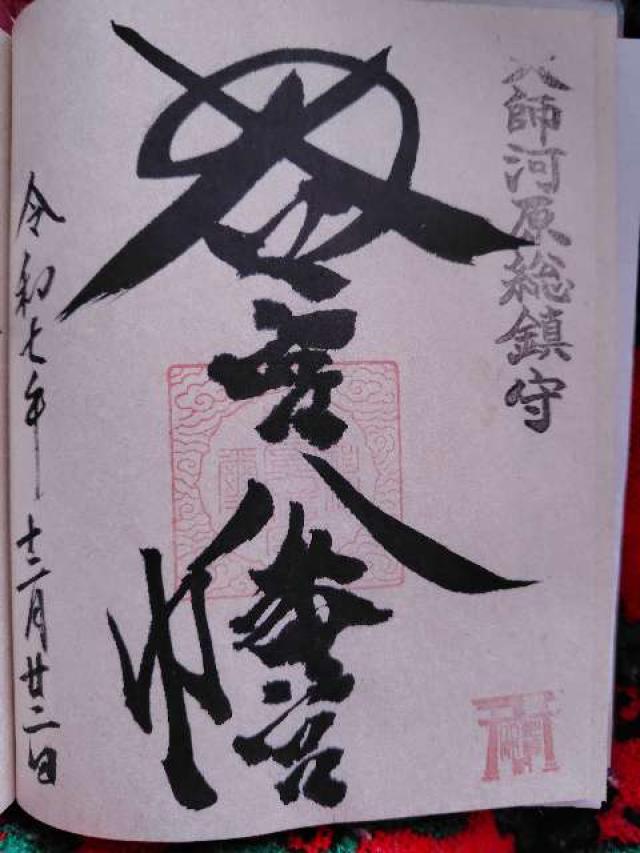 大師河原総鎮守
若宮八幡宮
令和七年十二月廿二日